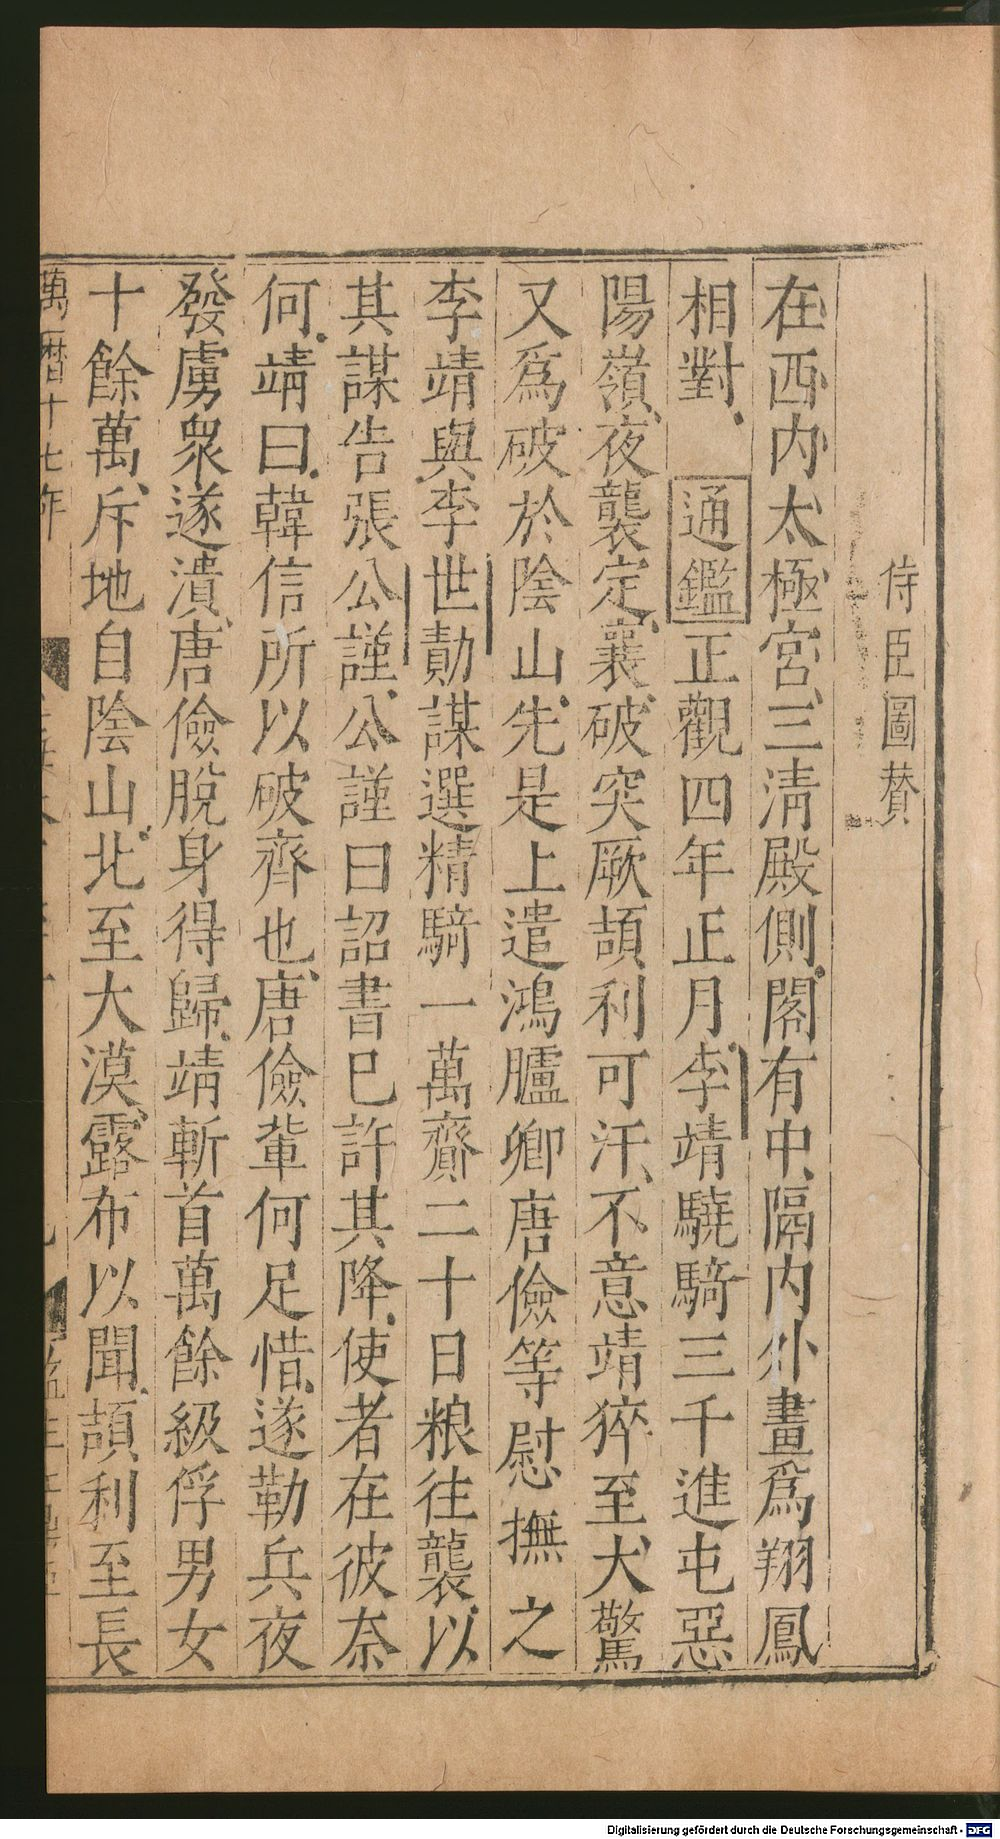 侍臣圖賛
在西内太極宮三清殿側閣有中隔内外畫爲翔鳳
相對 通鑑正觀四年正月李靖驍騎三千進屯惡
陽嶺夜襲定襄破突厥頡利可汗不意靖猝至大驚
又爲破於陰山先是上遣鴻臚卿唐儉等慰撫之
李靖與李世勣謀選精騎一萬齎二十日粮往襲以
其謀告張公謹公謹曰詔書巳許其降使者在彼柰
何靖曰韓信所以破齊也唐儉軰何足惜遂勒兵夜
發虜衆遂潰唐儉脫身得歸靖斬首萬餘級俘男女
十餘萬斥地自陰山北至大漠露布以聞頡利至長
萬曆十七年
Digitalisierung gefördert durch die Deutsche Forschungsgemeinschaft - DFG